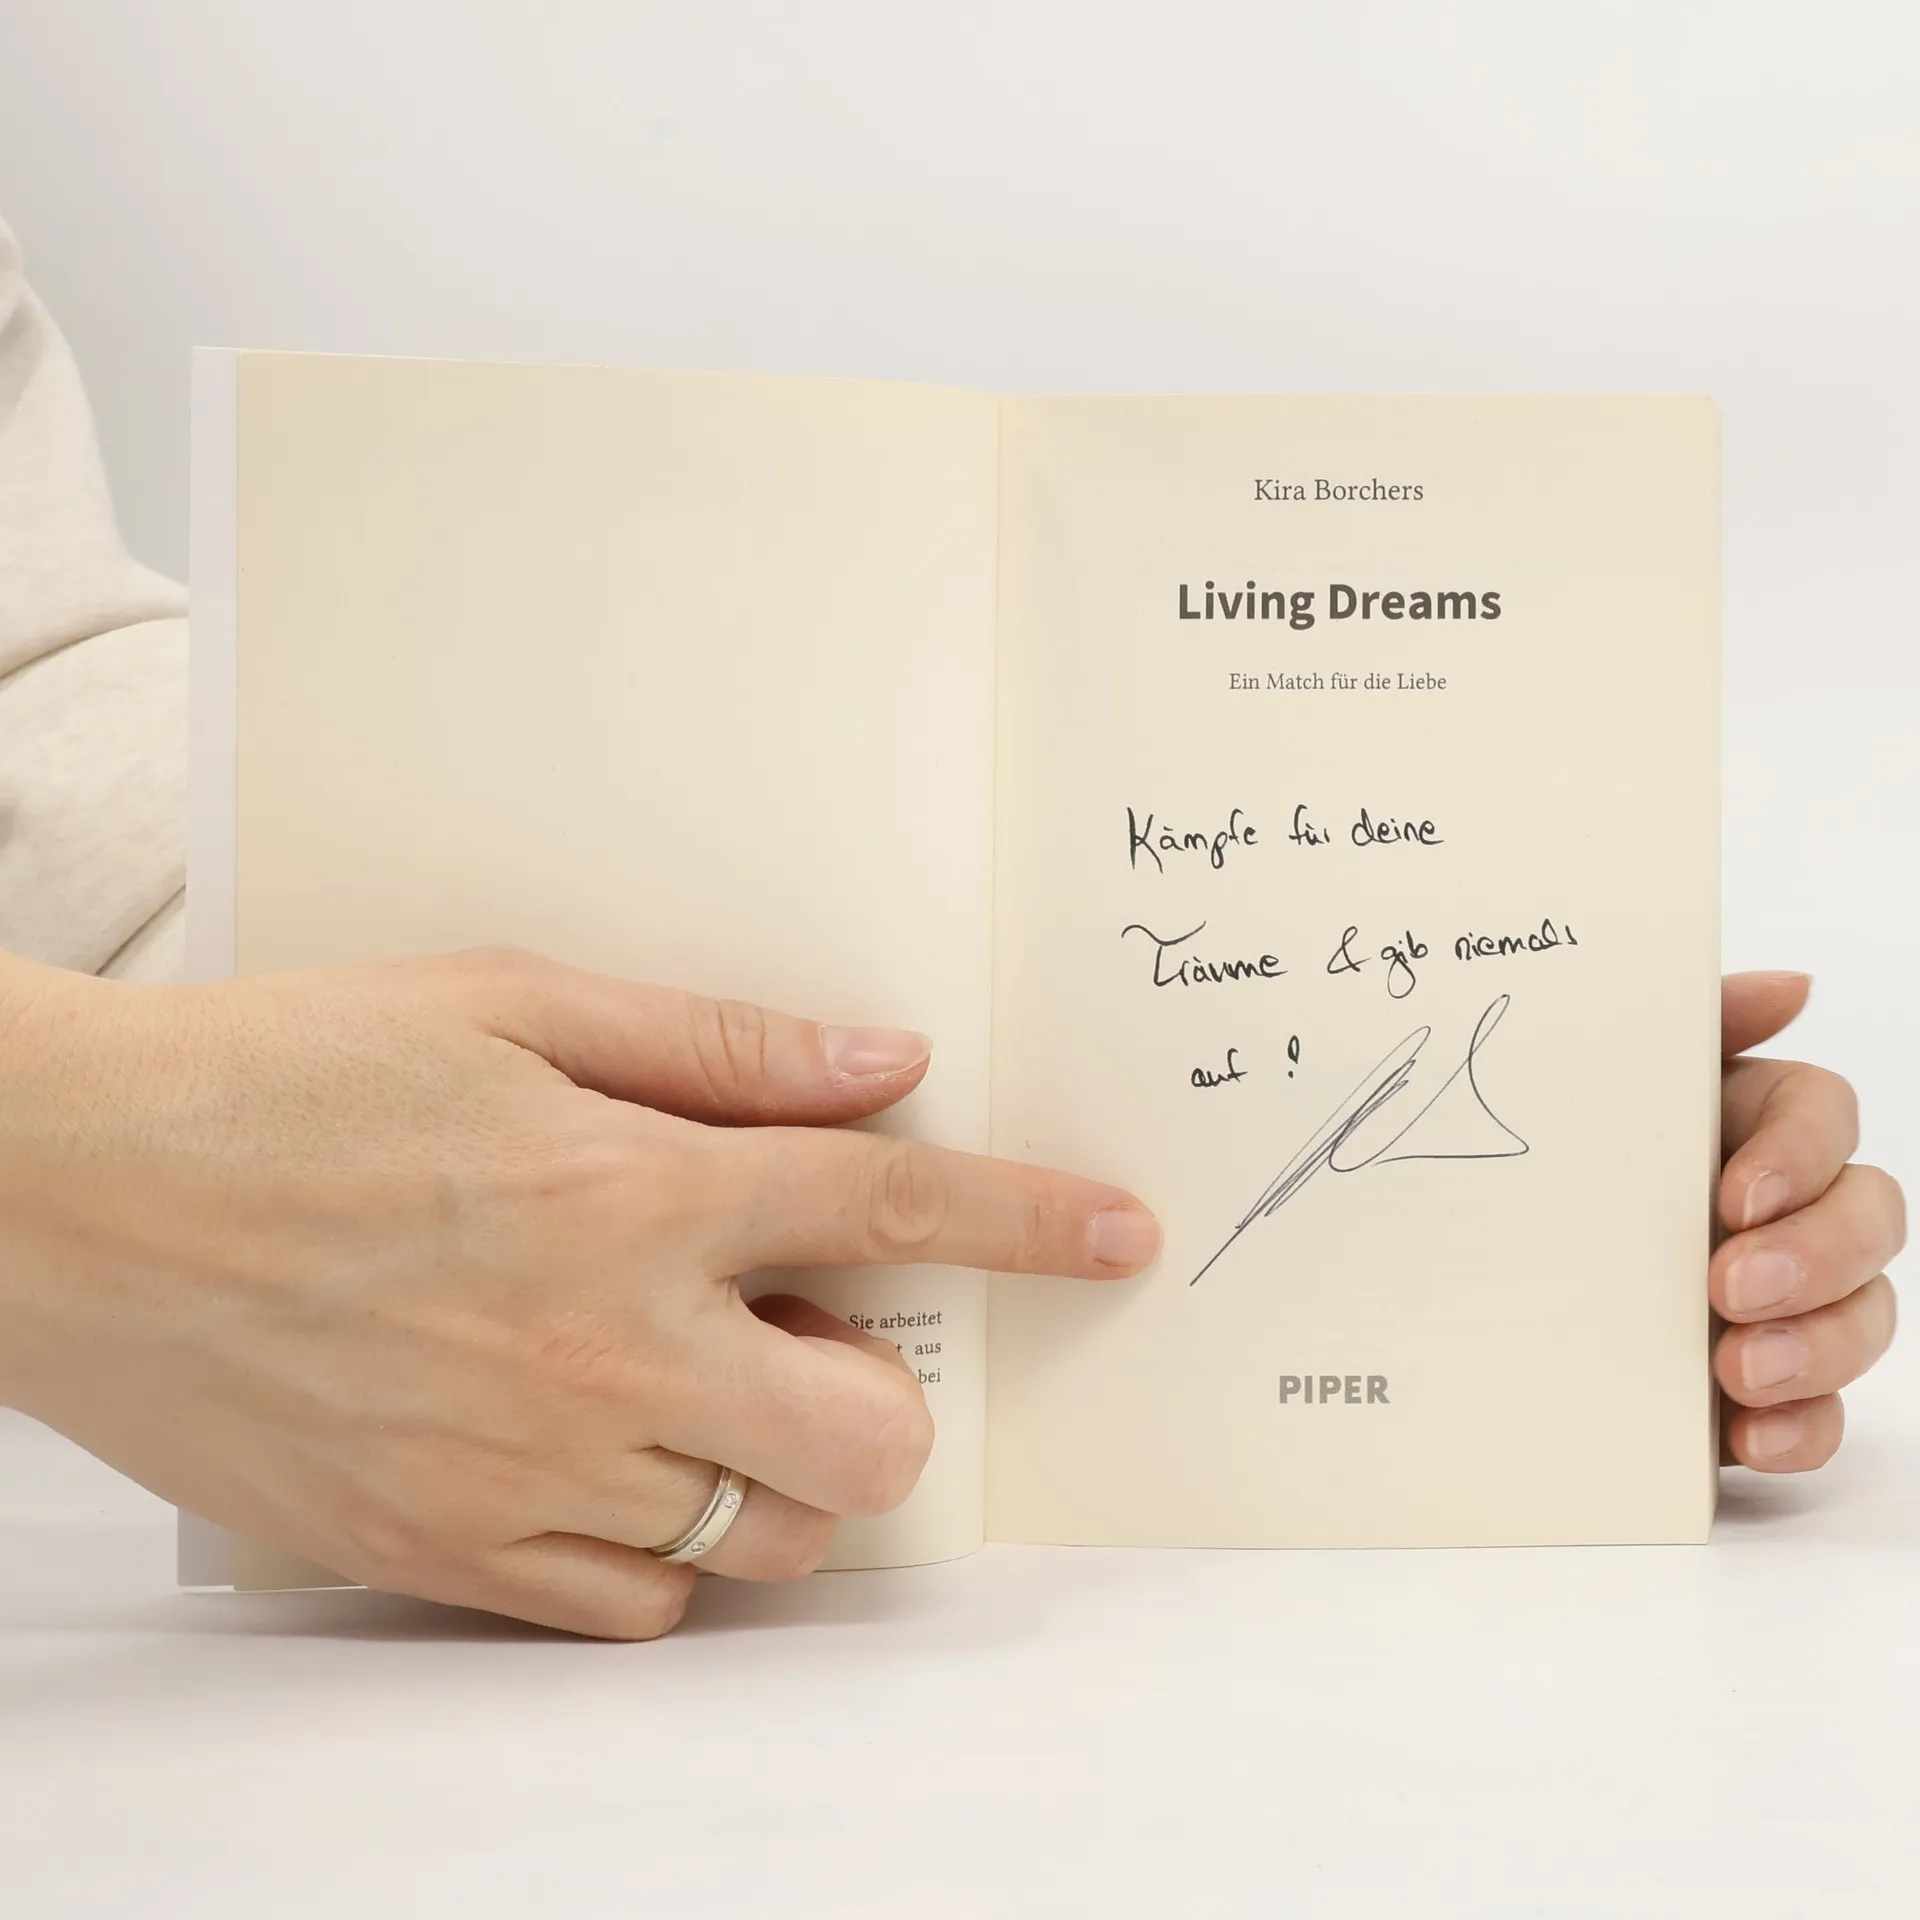 Sie arbeitet
aus
bei
Kira Borchers
Living Dreams
Ein Match für die Liebe
Kämpfe für deine
Träume & gib niemals
auf !
PIPER